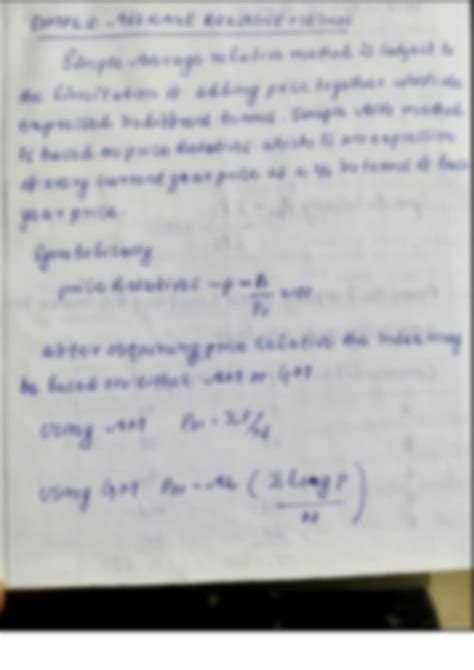 SIMPLE AVERAGE RELATIVE METHOD
Simple average relative method is subject to
the limitation of adding price together which are
expressed in different terms. Simple method
is based on price relatives which is an expression
of every current year price as a % in terms of base
year price.
price relatives - P = P₁/P₀ × 100
after obtaining price relative the index may
be based on either AM or GM
Using AM P₀₁ = ΣP/N
Using GM P₀₁ = AL ( Σ Log P / N )